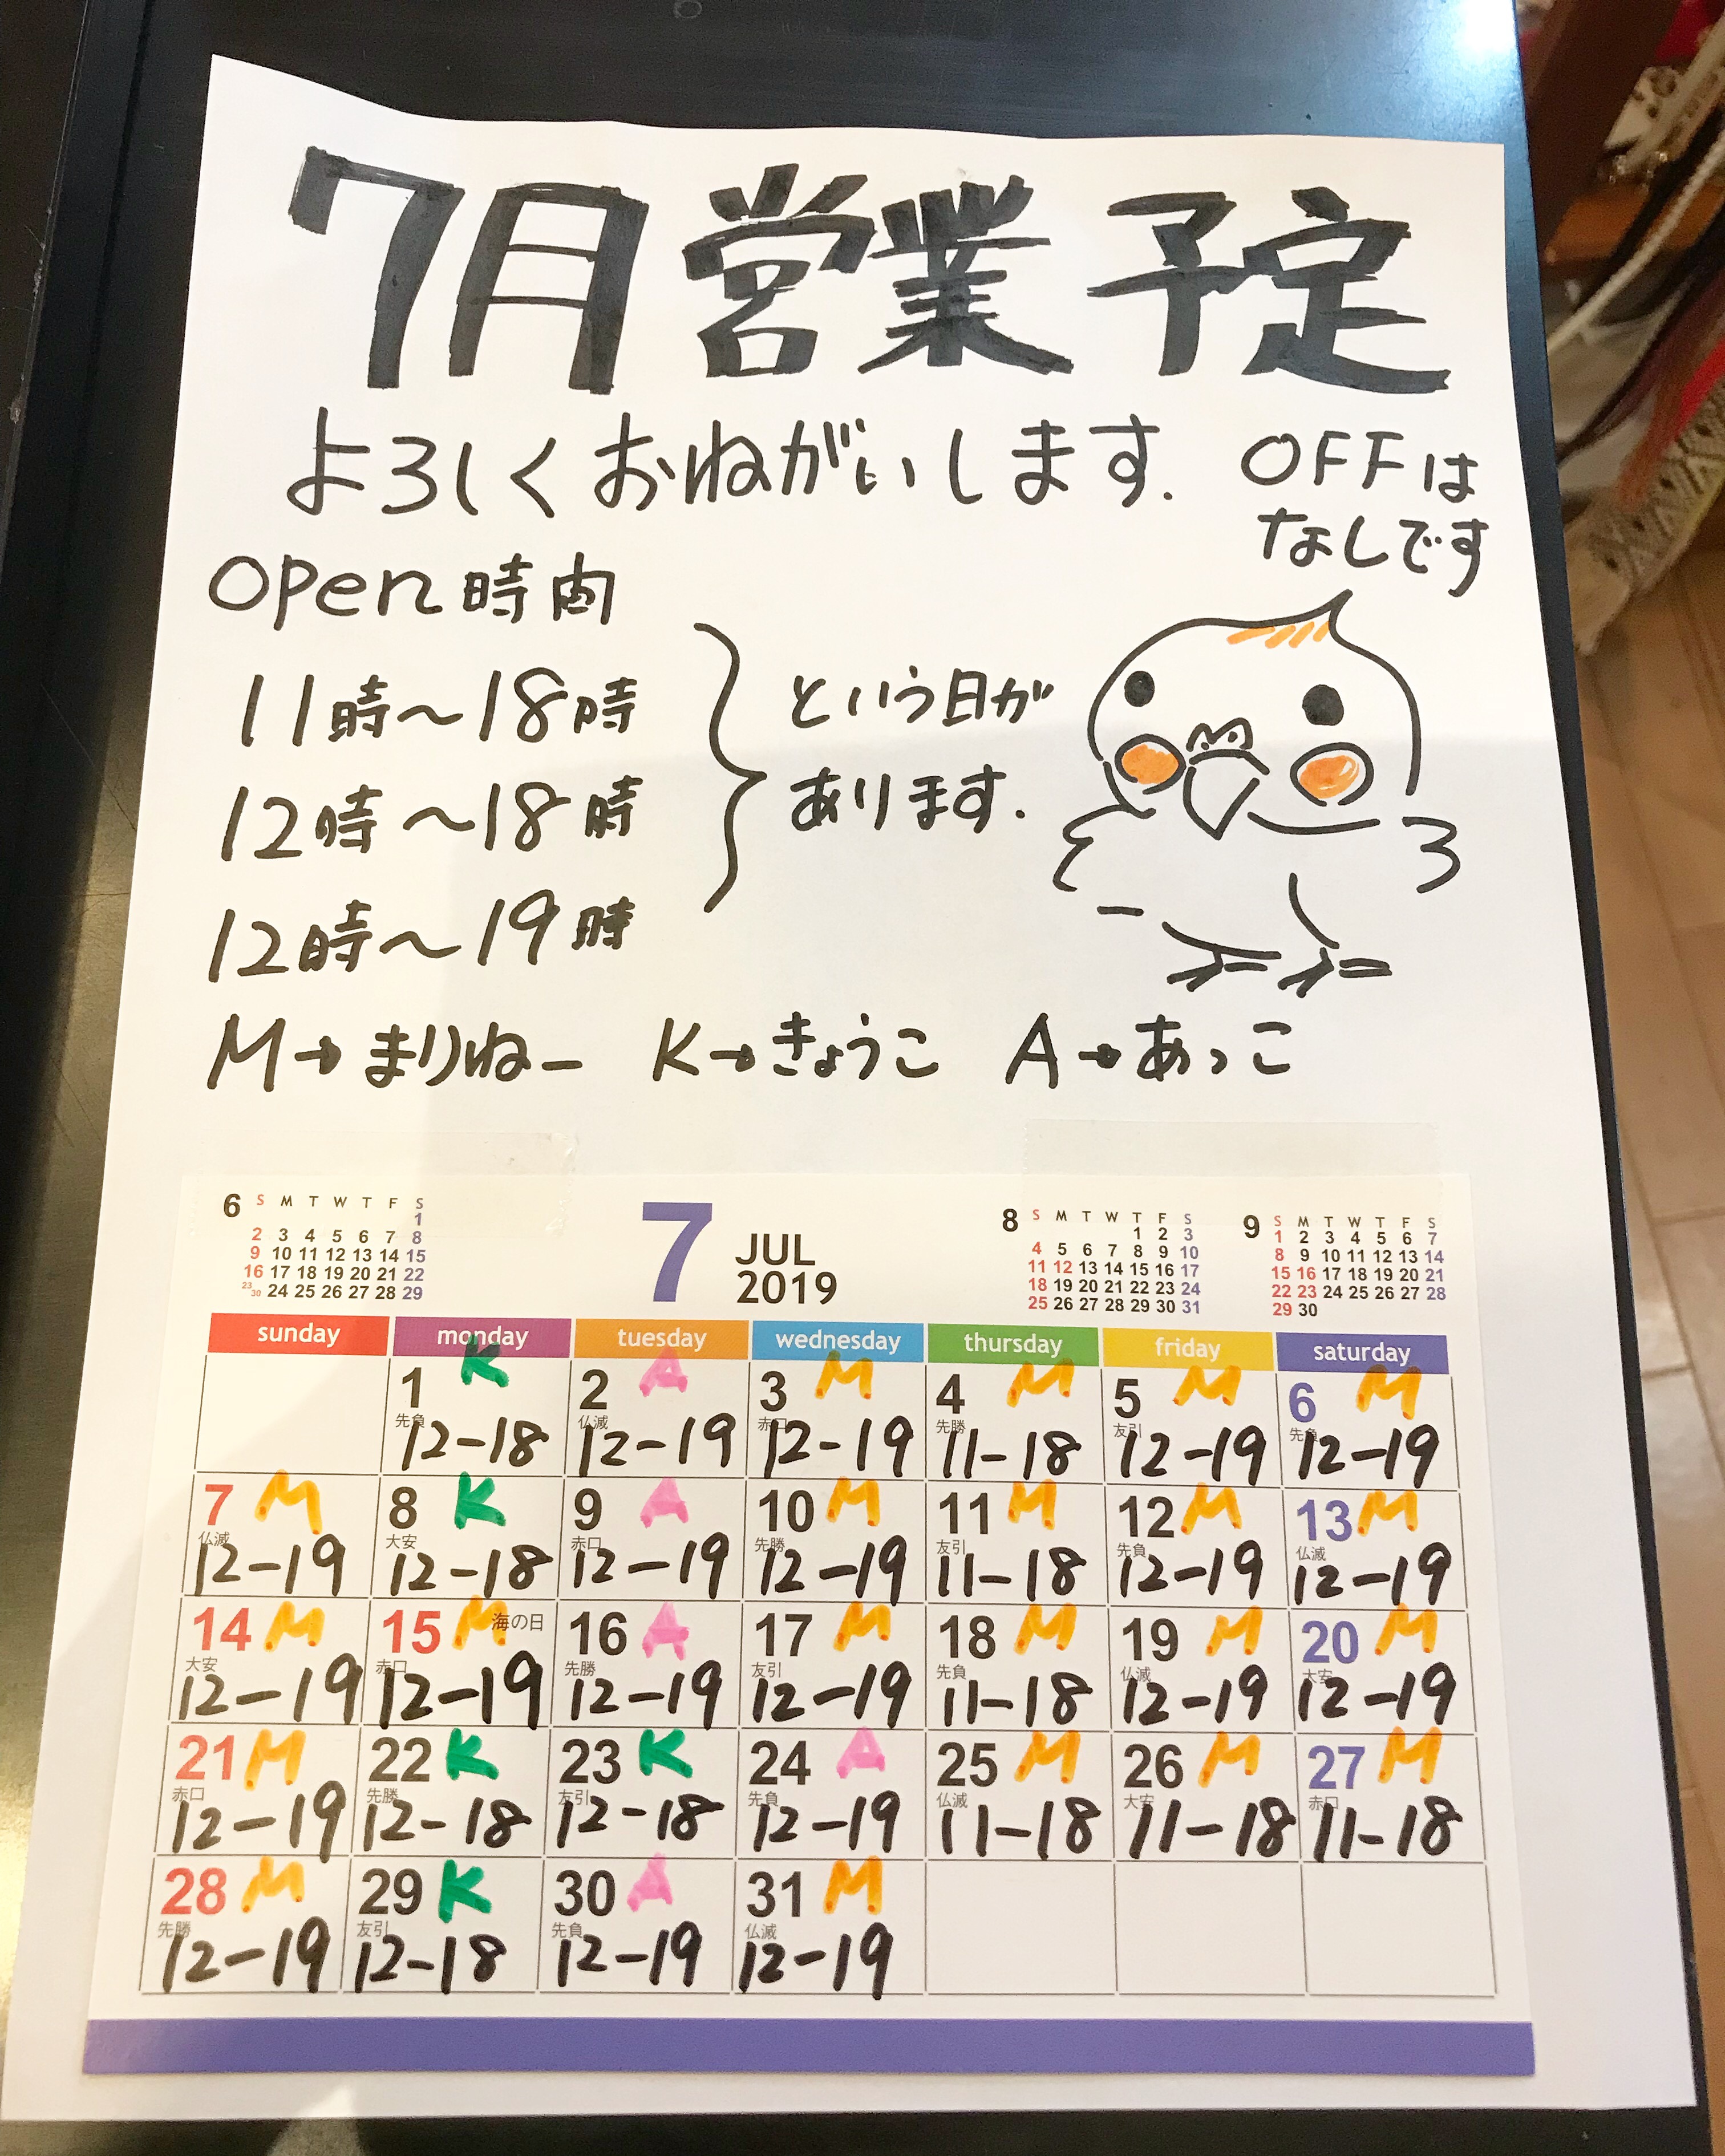 7月営業予定
よろしくおねがいします. OFFは
なしです
open時間
11時〜18時
12時〜18時
12時〜19時
という日が
あります.
M→まりねー K→きょうこ A→あっこ
6 S M T W T F S
1
2 3 4 5 6 7 8
9 10 11 12 13 14 15
16 17 18 19 20 21 22
23 30 24 25 26 27 28 29
7 JUL
2019
8 S M T W T F S
1 2 3
4 5 6 7 8 9 10
11 12 13 14 15 16 17
18 19 20 21 22 23 24
25 26 27 28 29 30 31
9 S M T W T F S
1 2 3 4 5 6 7
8 9 10 11 12 13 14
15 16 17 18 19 20 21
22 23 24 25 26 27 28
29 30
sunday monday tuesday wednesday thursday friday saturday
1 K 2 A 3 M 4 M 5 M 6 M
先負 仏滅 赤口 先勝 友引 先負
12-18 12-19 12-19 11-18 12-19 12-19
7 M 8 K 9 A 10 M 11 M 12 M 13 M
仏滅 大安 赤口 先勝 友引 先負 仏滅
12-19 12-18 12-19 12-19 11-18 12-19 12-19
14 M 15 M 海の日 16 A 17 M 18 M 19 M 20 M
大安 赤口 先勝 友引 先負 仏滅 大安
12-19 12-19 12-19 12-19 11-18 12-19 12-19
21 M 22 K 23 K 24 A 25 M 26 M 27 M
赤口 先勝 友引 先負 仏滅 大安 赤口
12-19 12-18 12-18 12-19 11-18 11-18 11-18
28 M 29 K 30 A 31 M
先勝 友引 先負 仏滅
12-19 12-18 12-19 12-19